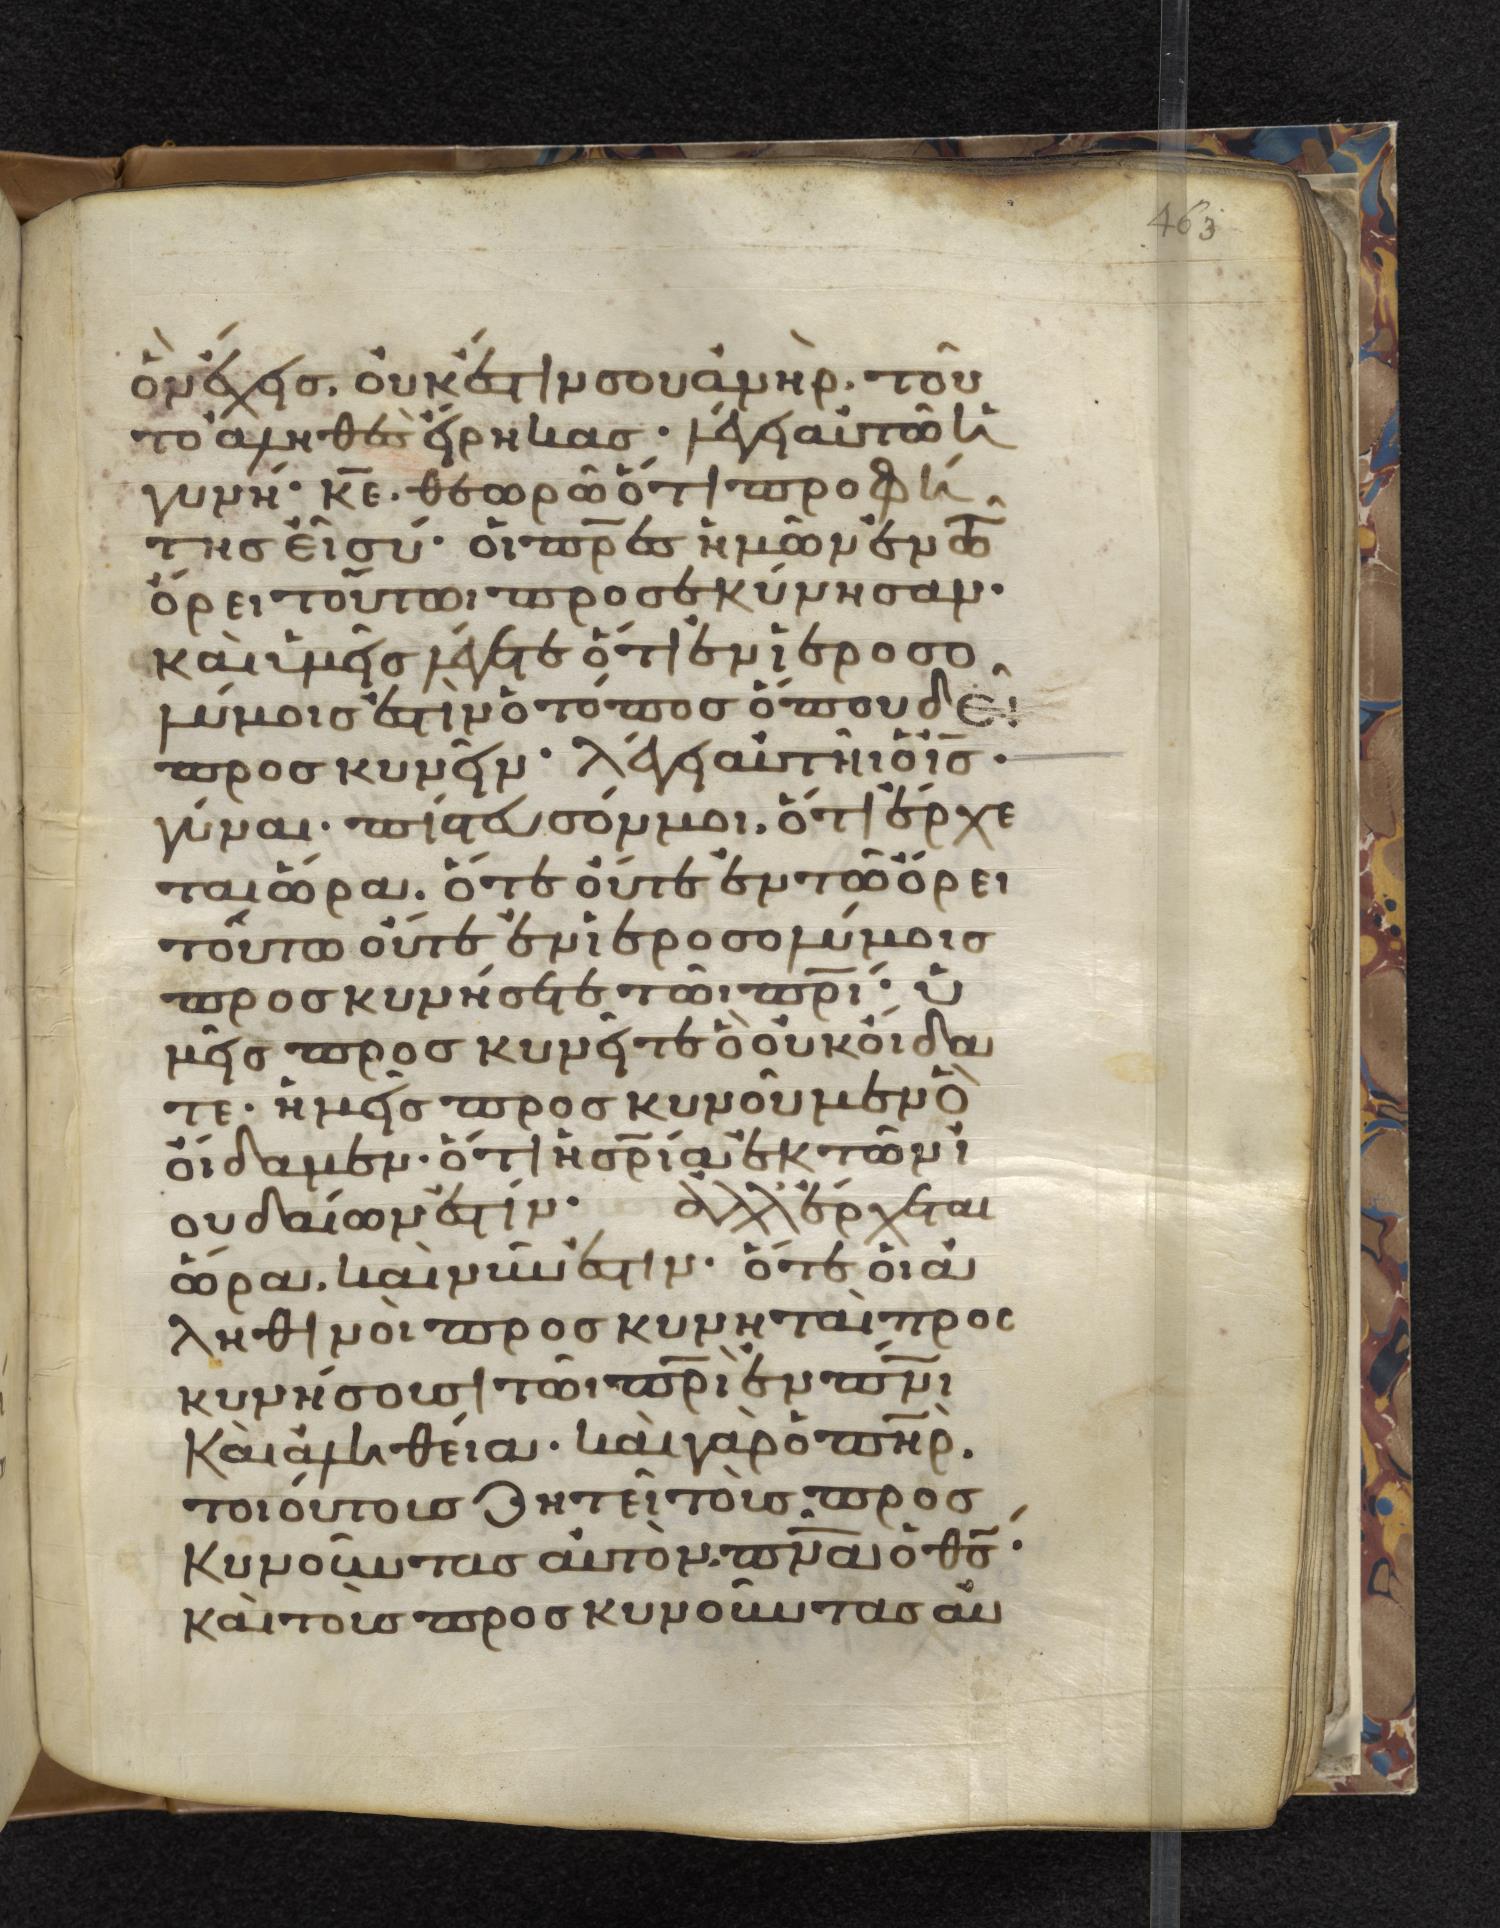 463
ὃν ἔχεις. οὐκ ἔστιν σου ἀνὴρ. τοῦ
το ἀληθὲς εἴρηκας· λέγει αὐτῶ ἡ
γυνή· κ̅ε̅. θεωρῶ ὅτι προφή
της εἶ σύ· οἱ π̅ρ̅ε̅ς̅ ἡμῶν ἐν τῶ
ὄρει τούτωι προσεκύνησαν·
καὶ ὑμεῖς λέγετε ὅτι ἐν ἱεροσο
λύμοις ἐστὶν ὁ τόπος ὅπου δεῖ
προσκυνεῖν· λέγει αὐτῆι ὁ ι̅ς̅·
γύναι· πίστευσόν μοι. ὅτι ἔρχε
ται ὥρα. ὅτε οὔτε ἐν τῶ ὄρει
τούτω οὔτε ἐν ἱεροσολύμοις
προσκυνήσετε τῶι π̅ρ̅ί̅· ὑ
μεῖς προσκυνεῖτε ὃ οὐκ οἴδα
τε· ἡμεῖς προσκυνοῦμεν ὃ
οἴδαμεν· ὅτι ἡ σ̅ρ̅ί̅α̅ ἐκ τῶν ἰ
ουδαίων ἐστίν· ἀλλ' ἔρχεται
ὥρα. καὶ νῦν ἐστιν· ὅτε οἱ ἀ
ληθινοὶ προσκυνηταὶ προς
κυνήσουσι τῶι π̅ρ̅ὶ̅ ἐν π̅ν̅ι̅
καὶ ἀληθεία· καὶ γὰρ ὁ π̅η̅ρ̅.
τοιούτους ζητεῖ τοὺς προσ
κυνοῦντας αὐτὸν. π̅ν̅α̅ ὁ θ̅ς̅·
καὶ τοὺς προσκυνοῦντας αὐ